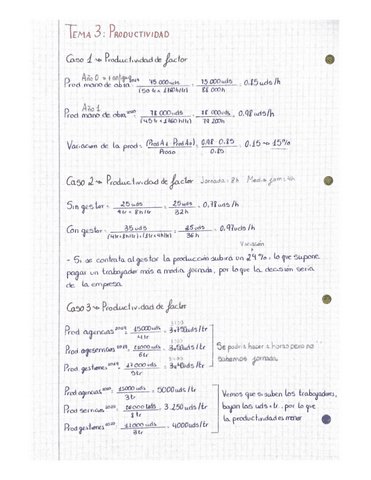 TEMA 3: PRODUCTIVIDAD
Caso 1 → Productividad de factor
Año 0
Prod mano de obra = 75.000 uds / = 75.000 uds / 88 000h = 0.85 uds/h
Año 1
Prod mano de obra = 78 000 uds / = 78 000 uds / = 0.98 uds/h
Variación de la prod = = 0.98 - 0.85 / 0.85 = 0.15 → 15%
Caso 2 → Productividad de factor Jornada = 8h Media jorn = 4h
Sin gestor = 25 uds / 4tr · 8h/tr = 25 uds / 32h = 0.78 uds/h
Con gestor = 35 uds / = 35 uds / 36h = 0.97 uds/h
Variación
- Si se contrata al gestor la producción subirá un 24%, lo que supone
pagar un trabajador más a media jornada, por lo que la decisión sería
de la empresa
Caso 3 → Productividad de factor
Prod agencias = 15000 uds / 4tr = uds/tr
Prod = uds / 6tr = uds/tr
Prod gestores = 17000 uds / 5tr = uds/tr
Se podría hacer a horas pero no
sabemos jornada.
Prod agencias = 15000 uds / 3tr = 5000 uds/tr
Prod = uds / = 3 250 uds/tr
Prod gestores = uds / 3tr = 4000 uds/tr
Vemos que si suben los trabajadores,
bajan las uds × tr, por lo que
la productividad es menor